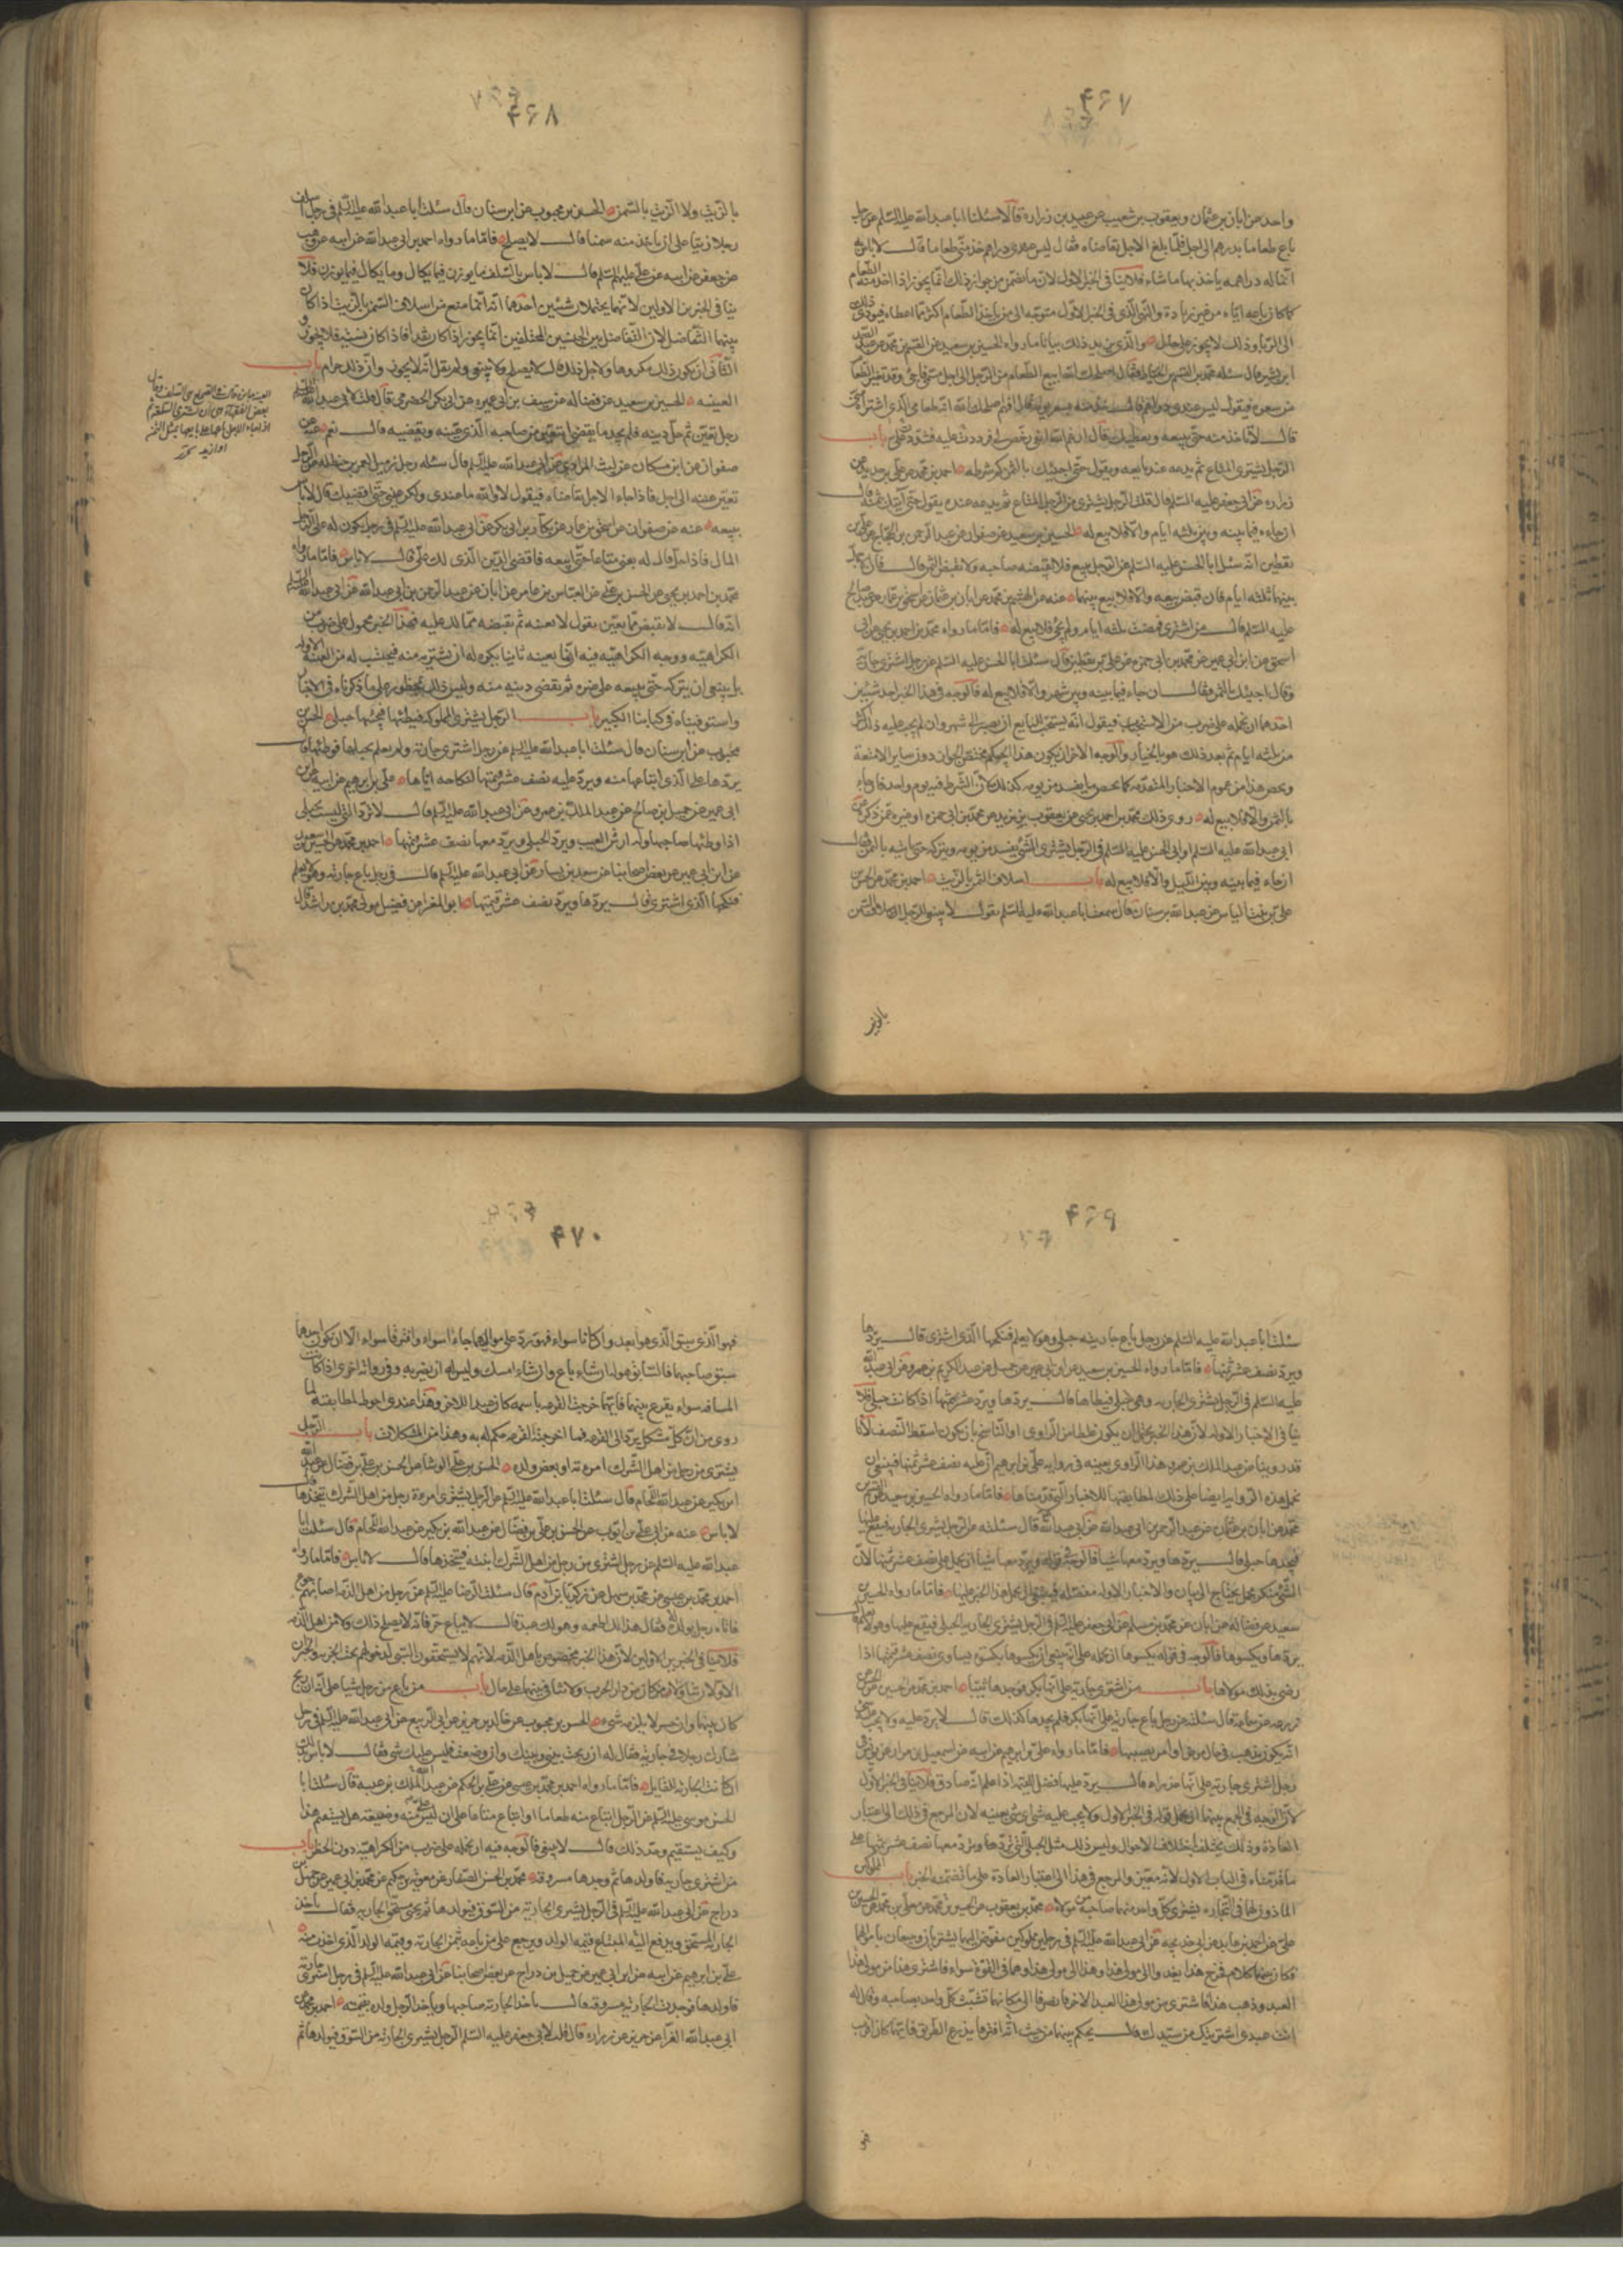 ۴۶۷
واحد عن ابان بن عثمان ويعقوب بن شعيب عن عبيد بن زرارة قالا سئلنا ابا عبد الله عليه السلم عن رجل
باع طعاما بدرهم الى اجل فلما بلغ الاجل تقاضاه فقال ليس عندى دراهم خذ منى طعاما قال لا باس به
انما له دراهمه ياخذ بها ما شاء فلا ينافى الخبر الاول لان ما تضمن من جواز ذلك انما يجوز اذا اخذ منه الطعام
كما كان باعه اياه من غير زيادة والنهى الذى فى الخبر الاول متوجه الى من ياخذ الطعام اكثر مما اعطاه فيؤدى ذلك
الى الربا وذلك لا يجوز على حال والذى يزيد ذلك بيانا ما رواه الحسين بن سعيد عن القسم بن محمد عن عبد الصمد
ابن بشير قال سئله محمد بن القسم الحناط فقال اصلحك الله ابيع الطعام من الرجل الى اجل فاجئ وقد تغير الطعام
من سعره فيقول ليس عندى دراهم قال خذ منه بسعر يومه قال افهم اصلحك الله انه طعامى الذى اشتراه منى
قال لا تاخذ منه حتى يبيعه ويعطيك قال ارغم الله انفى رخص لى فرددت عليه فشدد على باب
الرجل يشترى المتاع ثم يدعه عند بايعه ويقول حتى اجيئك بالثمن كم شرطه احمد بن محمد عن على بن حديد عن
زرارة عن ابى جعفر عليه السلم قال قلت الرجل يشترى من الرجل المتاع ثم يدعه عنده يقول حتى آتيك بثمنه قال
ان جاء فيما بينه وبين ثلثه ايام والا فلا بيع له الحسين بن سعيد عن صفوان عن عبد الرحمن بن الحجاج عن على بن
يقطين انه سئل ابا الحسن عليه السلم عن الرجل يبيع فلا يقبضه صاحبه ولا يقبض الثمن قال فان الاجل
بينهما ثلثه ايام فان قبض بيعه والا فلا بيع بينهما عنه عن الهيثم بن محمد عن ابان بن عثمان عن اسحق بن عمار عن عبد صالح
عليه السلم قال من اشترى فمضت ثلثه ايام ولم يجئ فلا بيع له فاما ما رواه محمد بن احمد بن يحيى عن ابى
اسحق عن ابن ابى عمير عن محمد بن ابى حمزه عن على بن يقطين قال سئلت ابا الحسن عليه السلم عن رجل اشترى جارية
وقال اجيئك بالثمن فقال ان جاء فيما بينه وبين شهر والا فلا بيع له فالوجه فى هذا الخبر احد شيئين
احدهما ان نحمله على ضرب من الاستحباب فيقول انه يستحب للبايع ان يصبر الى شهر وان لم يجب عليه ذلك اكثر
من ثلثه ايام ثم بعد ذلك هو بالخيار والوجه الاخر ان يكون هذا الحكم مختص الجوارى دون ساير الامتعة
ويخص هذا من عموم الاخبار المتقدمه كما يخص ما يفسد من يومه كذلك بان الشرط فيه يوم واحد فان جاء
بالثمن والا فلا بيع له روى ذلك محمد بن احمد بن يحيى عن يعقوب بن يزيد عن محمد بن ابى حمزه او غيره عمن ذكره عن
ابى عبد الله عليه السلم او ابى الحسن عليه السلم فى الرجل يشترى الشئ يفسد من يومه ويتركه حتى ياتيه بالثمن قال
ان جاء فيما بينه وبين الليل والا فلا بيع له باب اسلاف السمن بالزيت احمد بن محمد عن الحسن بن
على بن بنت الياس عن عبد الله بن سنان قال سمعت ابا عبد الله عليه السلم يقول لا ينبغى للرجل اسلاف السمن
بالزيت
۴۶۸
بالزيت ولا الزيت بالسمن الحسن بن محبوب عن ابن سنان قال سئلت ابا عبد الله عليه السلم فى رجل اسلف
رجلا زيتا على ان ياخذ منه سمنا قال لا يصلح فاما ما رواه احمد بن ابى عبد الله عن ابيه عن وهب
عن جعفر عن ابيه عن على عليهم السلم قال لا باس بالسلف ما يوزن فيما يكال وما يكال فيما يوزن فلا
ينافى الخبرين الاولين لانهما يحتملان شيئين احدهما انه انما منع من اسلاف السمن بالزيت اذا كان
بينهما التفاضل لان التفاضل بين الجنسين المختلفين انما يجوز اذا كان نقدا فاذا كان نسية فلا يجوز و
الثانى ان يكون ذلك مكروها ولاجل ذلك قال لا يصلح ولا ينبغى ولم يقل انه لا يجوز وان ذلك حرام باب
العينه الحسين بن سعيد عن فضاله عن سيف بن عميره عن ابى بكر الحضرمى قال قلت لابى عبد الله عليه السلم
رجل تعين ثم حل دينه فلم يجد ما يقضى ايتعين من صاحبه الذى عينه ويقضيه قال نعم عنه عن
صفوان عن ابن مسكان عن ليث المرادى عن ابى عبد الله عليه السلم قال سئله رجل زميل لعمر بن حنظله عن الرجل
تعين عينه الى اجل فاذا جاء الاجل تقاضاه فيقول لا والله ما عندى ولكن عينى حتى اقضيك قال لا باس
ببيعه عنه عن صفوان عن اسحق بن عمار عن بكار بن ابى بكر عن ابى عبد الله عليه السلم فى رجل يكون له على الرجل
المال فاذا حل قال له بعنى متاعا حتى ابيعه فاقضى الدين الذى لك على قال لا باس فاما ما رواه
محمد بن احمد بن يحيى عن الحسن بن على عن العباس بن عامر عن ابان عن عبد الرحمن بن ابى عبد الله عن ابى عبد الله عليه السلم
انه قال لا يقبض مما يعين يقول لا يعينه ثم يقبضه مما له عليه فهذا الخبر محمول على ضرب من
الكراهيه ووجه الكراهيه فيه انما يعينه ثانيا يكره له ان يشتريه منه فيحتسب له من العينة الاوله
بل ينبغى ان يتركه حتى يبيعه على غيره ثم يقضى دينه منه وليس ذلك بمحظور على ما ذكرناه فى الاخبار
واستوفيناه فى كتابنا الكبير باب الرجل يشترى المملوكه فيطئها فيجدها حبلى الحسن بن
محبوب عن ابن سنان قال سئلت ابا عبد الله عليه السلم عن رجل اشترى جارية ولم يعلم بحبلها فوطئها قال
يردها على الذى ابتاعها منه ويرد عليه نصف عشر قيمتها لنكاحه اياها على بن ابرهيم عن ابيه عن ابن
ابى عمير عن جميل بن صالح عن عبد الملك بن عمرو عن ابى عبد الله عليه السلم قال لا ترد التى ليست بحبلى
اذا وطئها صاحبها وله ارش العيب ويرد الحبلى ويرد معها نصف عشر قيمتها احمد بن محمد عن الحسين بن سعيد
عن ابن ابى عمير عن بعض اصحابنا عن سعيد بن يسار عن ابى عبد الله عليه السلم قال فى رجل باع جارية وهى حبلى ولم يعلم
فنكحها الذى اشترى قال يردها ويرد نصف عشر قيمتها ابو المغرا عن فضيل مولى محمد بن راشد قال
۴۶۹
سئلت ابا عبد الله عليه السلم عن رجل باع جارية حبلى وهو لا يعلم فنكحها الذى اشترى قال يردها
ويرد نصف عشر ثمنها فاما ما رواه الحسين بن سعيد عن ابن ابى عمير عن جميل عن عبد الملك بن عمرو عن ابى عبد الله
عليه السلم فى الرجل يشترى الجارية وهى حبلى فيطاها قال يردها ويرد عشر ثمنها اذا كانت حبلى فلا
ينافى الاخبار الاوله لان هذا الخبر يحتمل ان يكون غلطا من الراوى او الناسخ بان يكون اسقط النصف لانا
قد روينا عن عبد الملك بن عمرو هذا الراوى بعينه فى رواية على بن ابرهيم ان عليه نصف عشر ثمنها فينبغى ان
نحمل هذه الرواية ايضا على ذلك لمطابقتها للاخبار التى قدمناها فاما ما رواه الحسين بن سعيد عن القسم بن
محمد عن ابان بن عثمان عن عبد الرحمن بن ابى عبد الله عن ابى عبد الله قال سئلته عن الرجل يشترى الجارية فيقع عليها
فيجدها حبلى قال يردها ويرد معها شيئا فالوجه فى قوله ويرد معها شيئا ان يحمل على نصف عشر ثمنها لان
الشئ منكر مجمل يحتاج الى بيان والاخبار الاوله مفصله فينبغى ان يحمل هذا الخبر عليها فاما ما رواه الحسين بن
سعيد عن فضاله عن ابان عن محمد بن مسلم عن ابى جعفر عليه السلم فى الرجل يشترى الجارية الحبلى فيقع عليها وهو لا يعلم قال
يردها ويكسوها فالوجه فى قوله يكسوها ان نحمله على انه ينبغى ان يكسوها بكسوه تساوى نصف عشر قيمتها اذا
رضى بذلك مولاها باب من اشترى جارية على انها بكر فوجدها ثيبا احمد بن محمد عن الحسين عن الحسن عن
زرعه عن سماعه قال سئلته عن رجل باع جارية على انها بكر فلم يجدها كذلك قال لا يرد عليه ولا يجب عليه شئ
انه يكون يذهب فى حال مرض او امر يصيبها فاما ما رواه على بن ابرهيم عن ابيه عن اسمعيل بن مرار عن يونس فى
رجل اشترى جارية على انها عذراء قال يرد عليها فضل القيمة اذا علم انه صادق فلا ينافى الخبر الاول
لان الوجه فى الجمع بينهما ان نحمل قوله فى الخبر الاول ولا يجب عليه شئ اى شئ بعينه لان المرجع فى ذلك الى اعتبار
العادة وذلك يختلف باختلاف الاحوال وليس ذلك مثل الحبلى التى يردها ويرد معها نصف عشر ثمنها على
ما قدمناه فى الباب الاول لانه معين والمرجع فى هذا الى اعتبار العادة على ما تضمنه الخبر باب المملوكين
الماذون لهما فى التجارة يشترى كل واحد منهما صاحبه من مولاه محمد بن يعقوب عن الحسين بن محمد عن معلى بن محمد عن الحسن بن
على عن احمد بن عايذ عن ابى خديجه عن ابى عبد الله عليه السلم فى رجلين مملوكين مفوض اليهما يشتريان ويبيعان باموالهما
فكان بينهما كلام فخرج هذا يعدو الى مولى هذا وهذا الى مولى هذا وهما فى القوة سواء فاشترى هذا من مولى هذا
العبد وذهب هذا فاشترى من مولى هذا العبد الاخر فانصرفا الى مكانهما فتشبث كل واحد بصاحبه وقال له
انت عبدى اشتريتك من سيدك قال يحكم بينهما من حيث افترقا بذرع الطريق فايهما كان اقرب
فهو
۴۷۰
فهو الذى سبق الذى هو ابعد وان كانا سواء فهو رد على مواليهما جاءا سواء وافترقا سواء الا ان يكون احدهما
سبق صاحبه فالسابق هو له ان شاء باع وان شاء امسك وليس له ان يضربه وفى رواية اخرى اذا كانت
المسافه سواء يقرع بينهما فايهما خرجت القرعه باسمه كان عبدا للاخر وهذا عندى احوط لمطابقته لما
روى من ان كل مشكل يرد الى القرعه فما اخرجته القرعه حكم له به وهذا من المشكلات باب الرجل
يشترى من رجل من اهل الشرك امرءته او بعض ولده الحسن بن على الوشا عن الحسن بن على بن فضال عن عبد الله
ابن بكير عن عبد الله اللحام قال سئلت ابا عبد الله عليه السلم عن الرجل يشترى امرءة رجل من اهل الشرك يتخذها قال
لا باس عنه عن ابى على بن ايوب عن الحسن بن على بن فضال عن عبد الله بن بكير عن عبد الله اللحام قال سئلت ابا
عبد الله عليه السلم عن رجل اشترى من رجل من اهل الشرك ابنته فيتخذها قال لا باس فاما ما رواه
احمد بن محمد بن عيسى عن محمد بن سهل عن زكريا بن آدم قال سئلت الرضا عليه السلم عن رجل من اهل الذمه اصابهم جوع
فاتاه رجل بولد له فقال هذا لك اطعمه وهو لك عبد قال لا يباع حر فانه لا يصلح لك ولا من اهل الذمه
فلا ينافى الخبرين الاولين لان هذا الخبر مخصوص باهل الذمه لانهم لا يستحقون السبى لدخولهم تحت الجزيه والخبران
الاولان متناولان لمن كان من دار الحرب ولا تنافى بينهما على حال باب من باع من رجل شيئا على انه ان ربح
كان بينهما وان خسر لا يلزمه شئ الحسن بن محبوب عن خالد بن جرير عن ابى الربيع عن ابى عبد الله عليه السلم فى رجل
شارك رجلا فى جارية فقال له ان ربحت بينى وبينك وان وضعت فليس عليك شئ فقال لا باس بذلك
ان كانت الجارية للقايل فاما ما رواه احمد بن محمد بن عيسى عن على بن الحكم عن عبد الملك بن عتبة قال سئلت ابا
الحسن موسى عليه السلم عن الرجل ابتاع منه طعاما او ابتاع متاعا على ان ليس على منه وضيعته هل يستقيم هذا
وكيف يستقيم وحد ذلك قال لا ينبغى فالوجه فيه ان نحمله على ضرب من الكراهيه دون الحظر باب
من اشترى جارية فاولدها ثم وجدها مسروقه محمد بن الحسن الصفار عن معويه بن حكيم عن محمد بن ابى عمير عن جميل بن
دراج عن ابى عبد الله عليه السلم فى الرجل يشترى الجارية من السوق فيولدها ثم يجئ مستحق الجارية فقال ياخذ
الجارية المستحق ويدفع اليه المبتاع قيمة الولد ويرجع على من باعه بثمن الجارية وقيمة الولد الذى اخذت منه
على بن ابرهيم عن ابيه عن ابن ابى عمير عن جميل بن دراج عن بعض اصحابنا عن ابى عبد الله عليه السلم فى رجل اشترى جارية
فاولدها فوجدت الجارية مسروقه قال ياخذ الجارية صاحبها وياخذ الرجل ولده بقيمته احمد بن محمد عن
ابى عبد الله الفرا عن حريز عن زراره قال قلت لابى جعفر عليه السلم الرجل يشترى الجارية من السوق فيولدها ثم